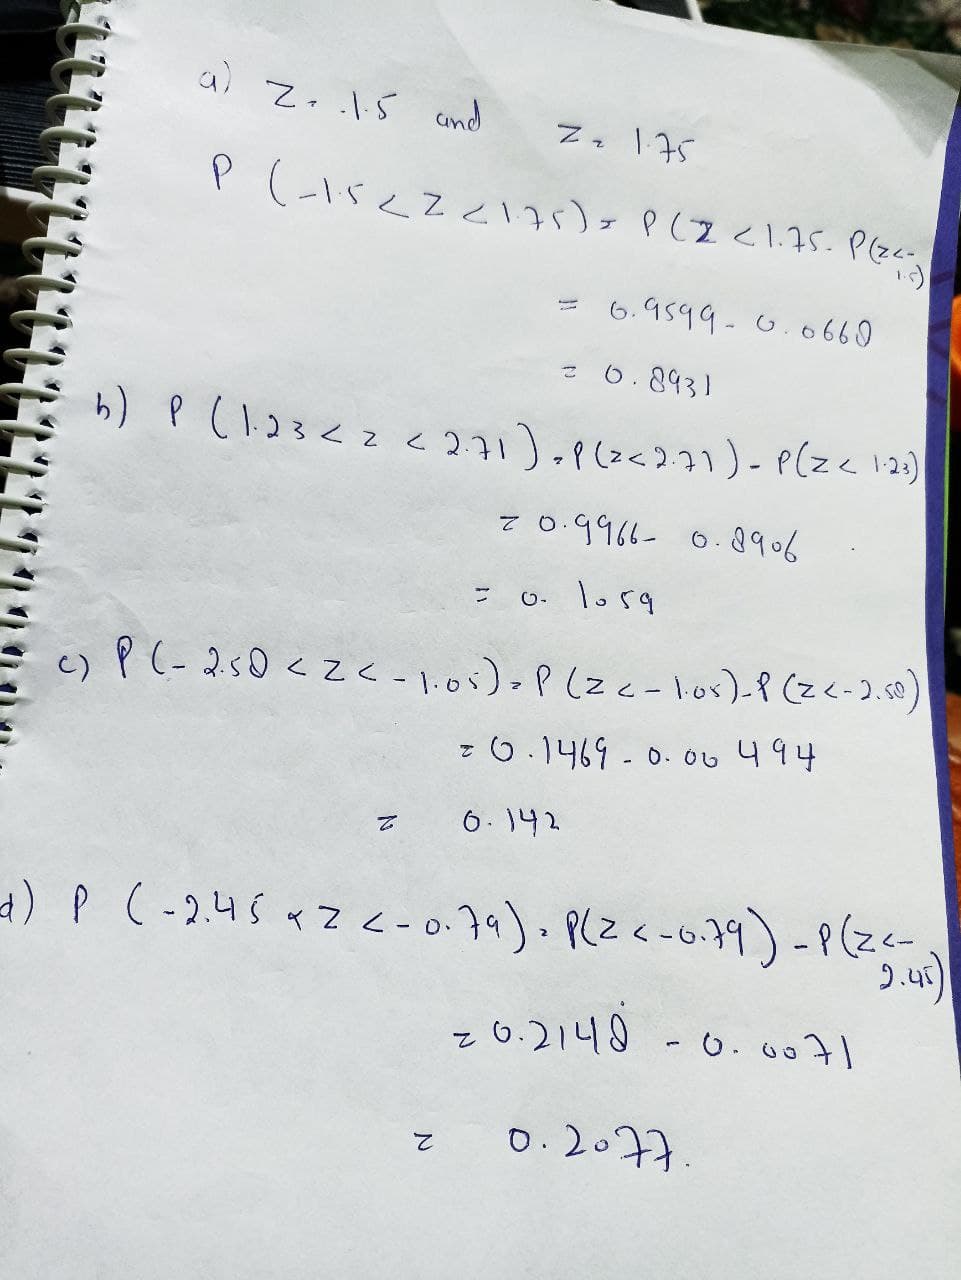 a) Z = -1.5 and Z = 1.75
P (-1.5 < Z < 1.75) = P(Z < 1.75 - P(z<-1.5)
= 0.9599 - 0.0668
= 0.8931
b) P (1.23 < z < 2.71) = P(z<2.71) - P(z < 1.23)
= 0.9966 - 0.8906
= 0.1059
c) P (-2.58 < Z < -1.05) = P (Z < -1.05) - P (Z < -2.58)
= 0.1469 - 0.00494
= 0.142
d) P (-2.45 < Z < -0.79) = P(Z < -0.79) - P(Z < -2.45)
= 0.2148 - 0.0071
= 0.2077.